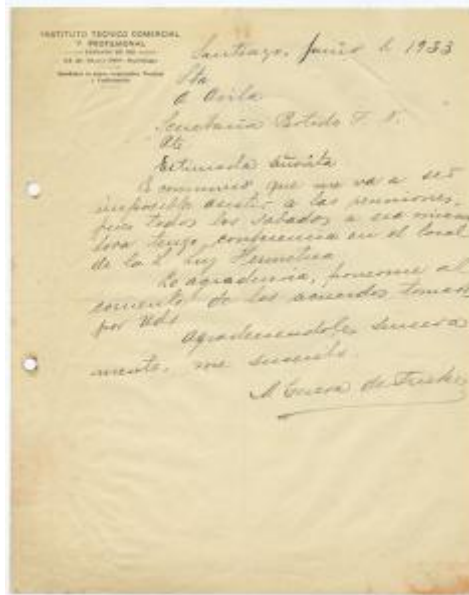 INSTITUTO TECNICO COMERCIAL
Y PROFESIONAL
Santiago, junio de 1933
Sta
A Avila
Secretaria Partido F. N.
Pte
Estimada señorita
Le comunico que me va a ser
imposible asistir a las reuniones,
pues todos los sabados a esa misma
hora tengo conferencia en el local
de la L. Luz
Le agradeceria, ponerme al
corriente de los acuerdos tomados
por Uds
Agradeciendole sincera
mente, me suscribo.
M de